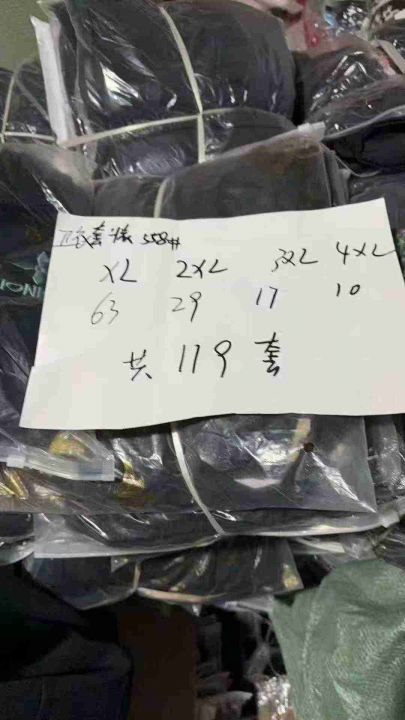 卫衣套装 558#
XL 2XL 3XL 4XL
63 29 17 10
共 119 套